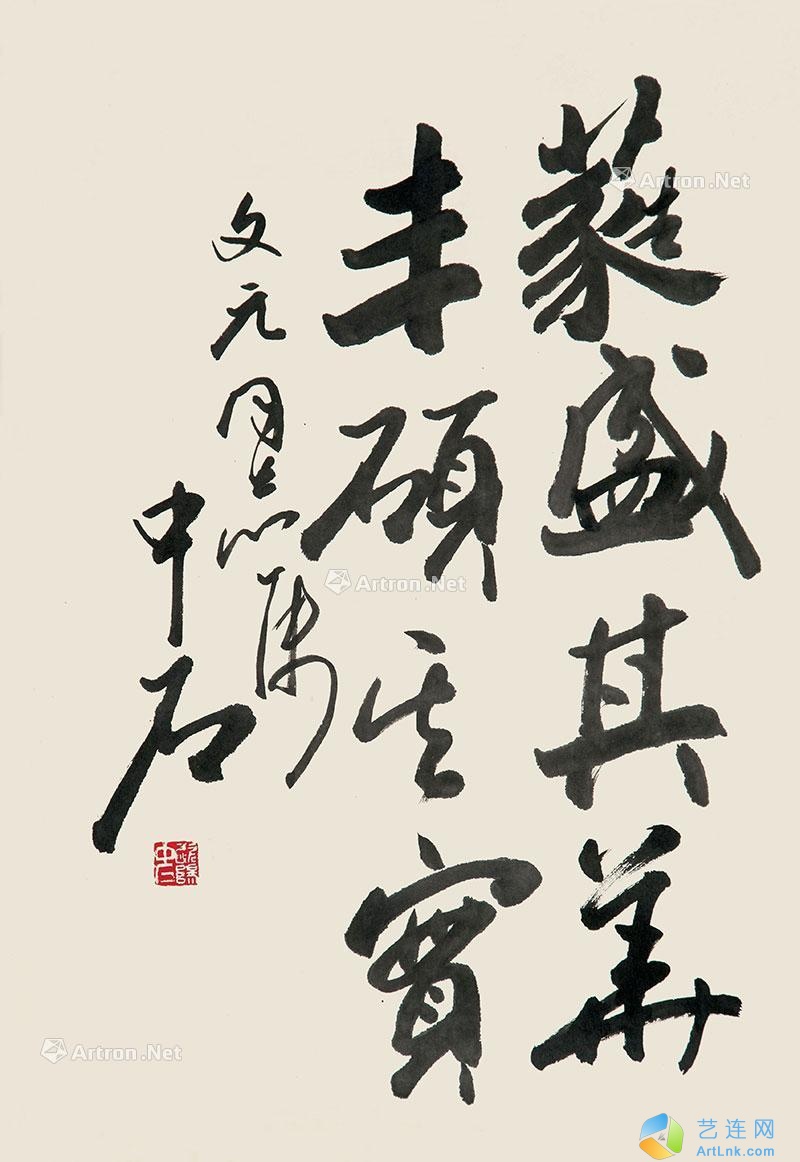 蕤盛其華
丰碩其實
文元同志属
中石
Artron.Net
Artron.Net
Artron.Net
艺连网
ArtLnk.com